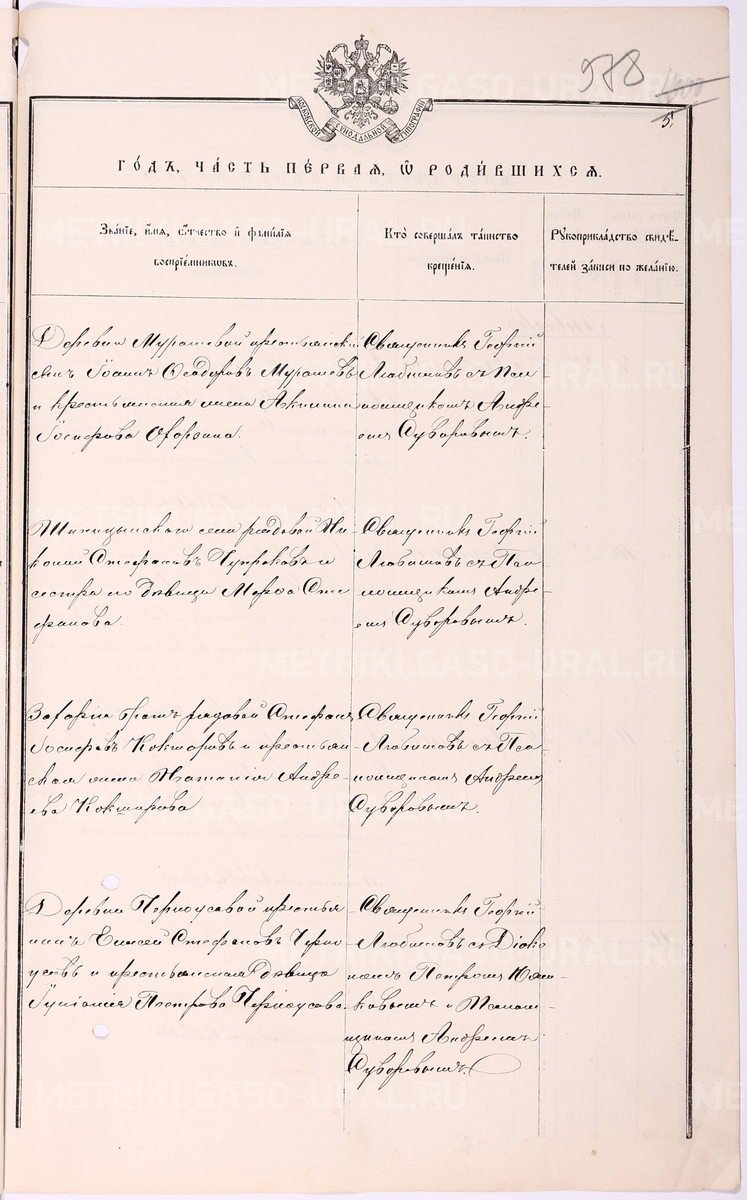 578
5.
МОСКОВСКОЙ СѴНОДАЛЬНОЙ ТИПОГРАФІИ
ГОДЪ, ЧАСТЬ ПЕРВАЯ, Ѡ РОДИВШИХСЯ.
Званіе, имя, отчество и фамилія
воспріемниковъ.
Кто совершалъ таинство
крещенія.
Рукоприкладство свидѣ-
телей записи по желанію.
Деревни Мурашевой крестьянскій
сынъ Іоаннъ Ѳеодоровъ Мурашевъ
и крестьянская жена Акилина
Іосифова
Священникъ Георгій
Любимовъ съ Пса
ломщикомъ Андре-
емъ Суворовымъ.
села рядовой Ни-
Стефановъ Чупраковъ и
сестра его дѣвица Марѳа Сте
фанова.
Священникъ Георгій
Любимовъ съ Пса
ломщикомъ Андре-
емъ Суворовымъ.
братъ рядовой Стефанъ
Іосифовъ Кокшаровъ и крестьян
ская жена Наталія Андре-
ева Кокшарова
Священникъ Георгій
Любимовъ съ Пса
ломщикомъ Андреемъ
Суворовымъ.
Деревни Черноусовой крестья
нинъ Елисей Стефановъ Черно
усовъ и крестьянская дѣвица
Петрова Черноусова.
Священникъ Георгій
Любимовъ съ Діако
номъ Петромъ
ковымъ и Псалом-
щикомъ Андреемъ
Суворовымъ.
METRIKI.GASO-URAL.RU